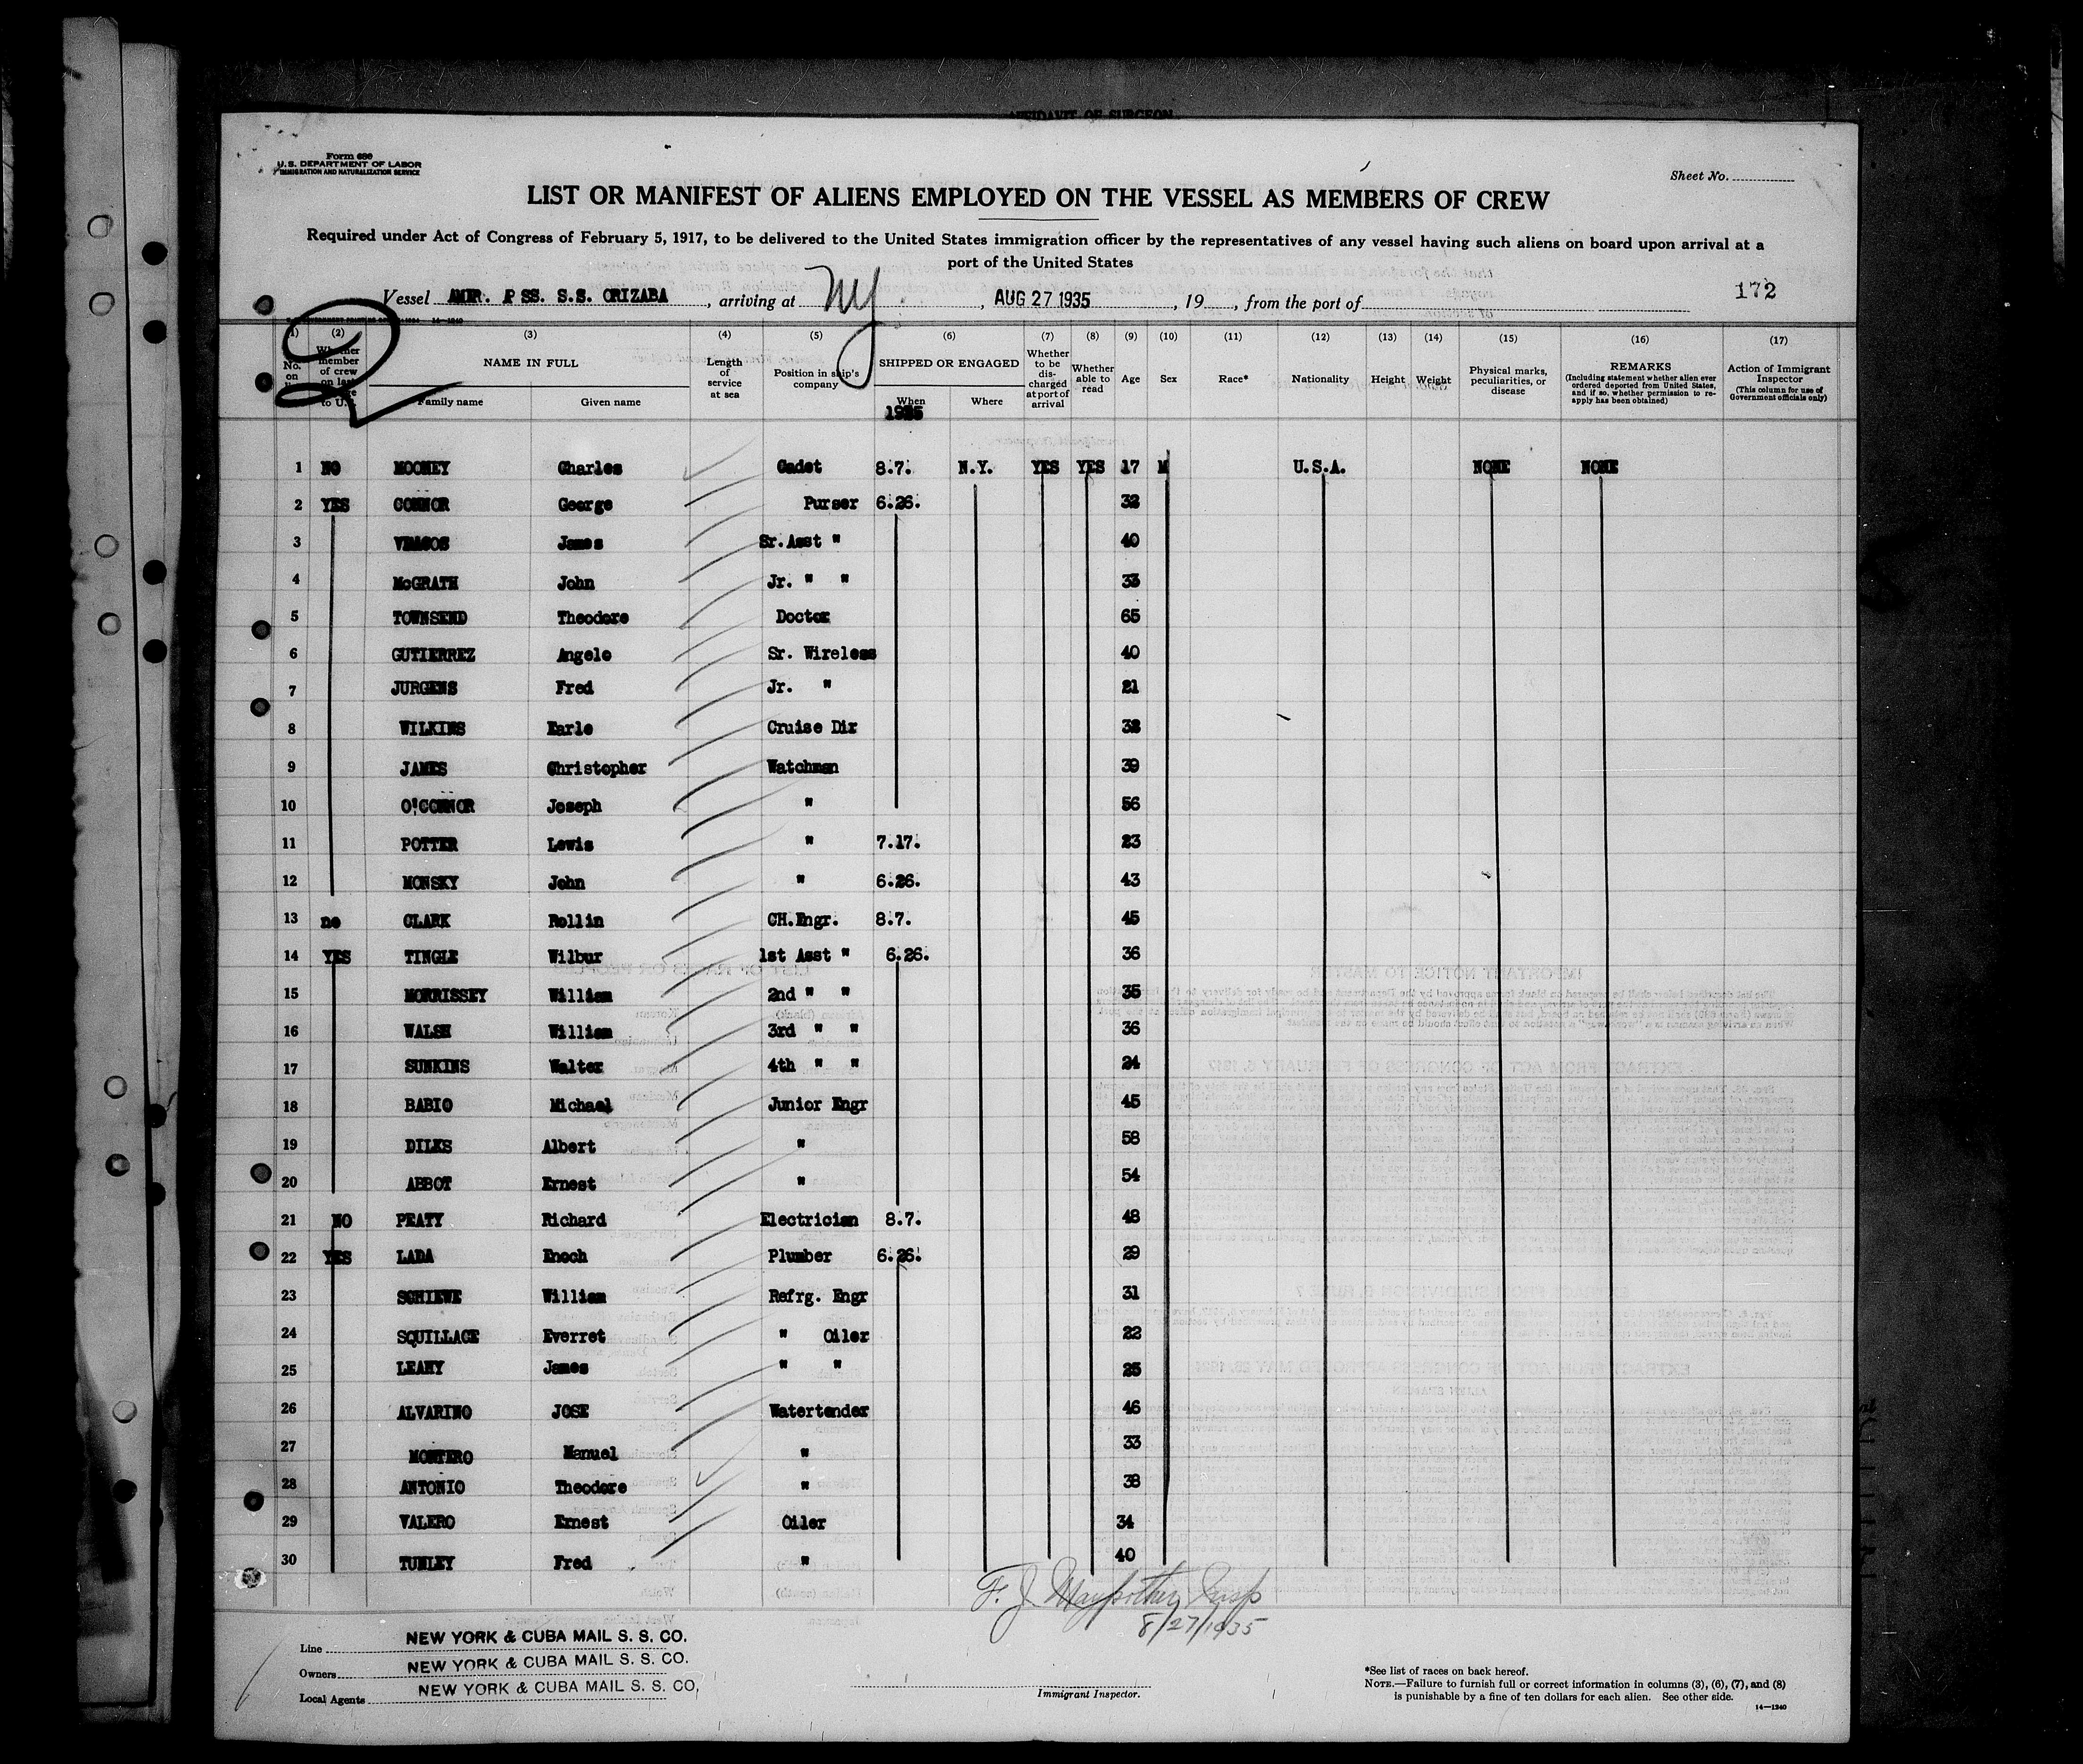 AFFIDAVIT OF SURGEON
Form 680
U.S. DEPARTMENT OF LABOR
IMMIGRATION AND NATURALIZATION SERVICE
Sheet No.
LIST OR MANIFEST OF ALIENS EMPLOYED ON THE VESSEL AS MEMBERS OF CREW
Required under Act of Congress of February 5, 1917, to be delivered to the United States immigration officer by the representatives of any vessel having such aliens on board upon arrival at a
port of the United States
172
Vessel AMER. P SS. S.S. ORIZABA, arriving at NY, AUG 27 1935, 19, from the port of
(1) (2) (3) (4) (5) (6) (7) (8) (9) (10) (11) (12) (13) (14) (15) (16) (17)
No. on Whether member of crew on last to U.S. NAME IN FULL Family name Given name Length of service at sea Position in ship's company SHIPPED OR ENGAGED When Where Whether to be discharged at port of arrival Whether able to read Age Sex Race* Nationality Height Weight Physical marks, peculiarities, or disease REMARKS (Including statement whether alien ever ordered deported from United States, and if so, whether permission to re-apply has been obtained) Action of Immigrant Inspector (This column for use of Government officials only)
1935
1 NO MOONEY Charles Cadet 8.7. N.Y. YES YES 17 M U.S.A. NONE NONE
2 YES CONNOR George Purser 6.26. 32
3 James Sr.Asst " 40
4 McGRATH John Jr. " " 33
5 TOWNSEND Theodore Doctor 65
6 GUTIERREZ Angelo Sr. Wireless 40
7 JURGENS Fred Jr. " 21
8 WILKINS Earle Cruise Dir 38
9 JAMES Christopher Watchman 39
10 O'CONNOR Joseph " 56
11 POTTER Lewis " 7.17. 23
12 MONSKY John " 6.26. 43
13 no CLARK Rollin CH.Engr. 8.7. 45
14 YES TINGLE Wilbur 1st Asst " 6.26. 36
15 MORRISSEY William 2nd " " 35
16 WALSH William 3rd " " 36
17 SUNKINS Walter 4th " " 24
18 BABIO Michael Junior Engr 45
19 DILKS Albert " 58
20 ABBOT Ernest " 54
21 NO PEATY Richard Electrician 8.7. 48
22 YES LADA Enoch Plumber 6.26. 29
23 SCHIEWE William Refrg. Engr 31
24 SQUILLACE Everret " Oiler 22
25 LEAHY James " " 25
26 ALVARINO JOSE Watertender 46
27 MONTERO Manuel " 33
28 ANTONIO Theodore " 38
29 VALERO Ernest Oiler 34
30 TUNLEY Fred " 40
F. J. Insp
8/27/1935
Line NEW YORK & CUBA MAIL S. S. CO.
Owners NEW YORK & CUBA MAIL S. S. CO.
Local Agents NEW YORK & CUBA MAIL S. S. CO.
Immigrant Inspector.
*See list of races on back hereof.
NOTE.—Failure to furnish full or correct information in columns (3), (6), (7), and (8)
is punishable by a fine of ten dollars for each alien. See other side.
14—1240